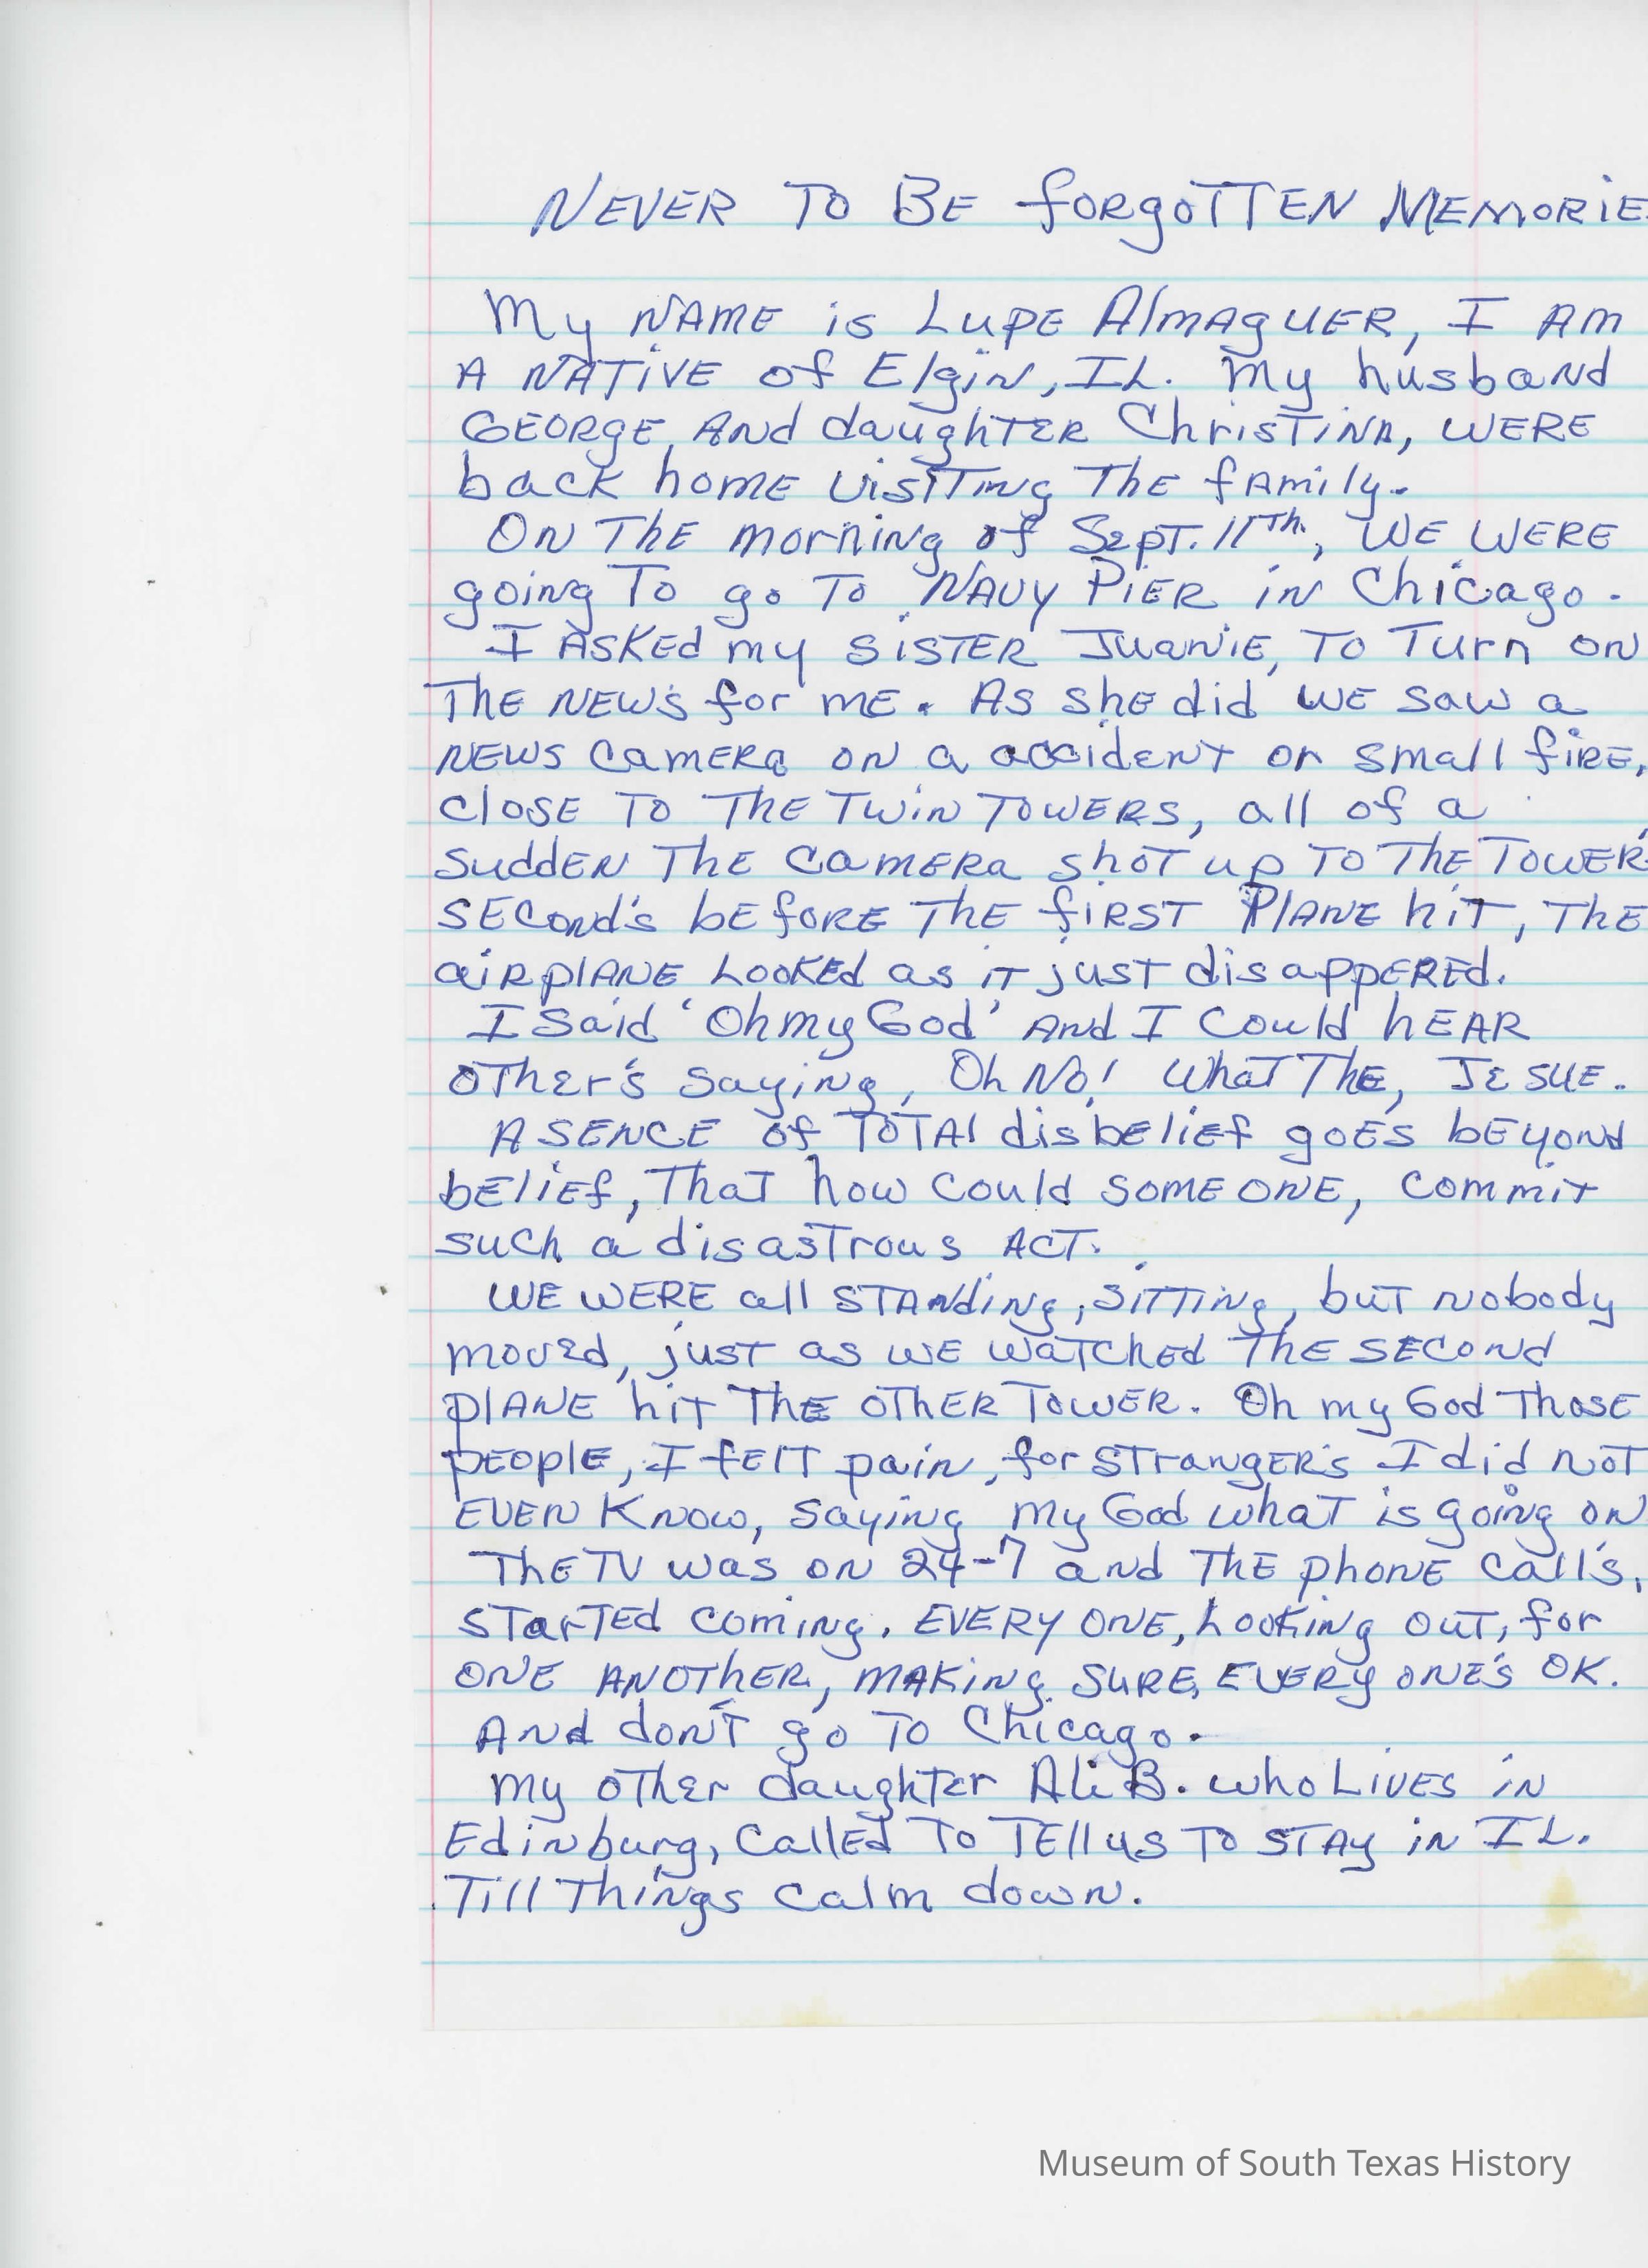 NEVER TO BE forgoTTEN MEMORIE
My NAME is LupE AlmAgUER, I AM
A NATIVE of Elgin, IL. My husband
GEORgE, And daughTER ChrisTiNA, WERE
back homE visiTing ThE fAmily.
ON ThE morning of SepT. 11Th, WE WERE
going To go To NAVy PiER in Chicago.
I ASKEd my SiSTER JuaNiE, To Turn on
ThE NEW's for mE. As shE did WE saw a
NEWS CamERa on a accident or small fiRE,
CloSE To ThE Twin TowERS, all of a
SuddEN ThE CamERa shoT up To ThE TowER
SECond's bEfoRE ThE fiRST PlANE hiT, ThE
aiRplANE LooKEd as iT jusT disappERed.
I Said 'Oh my God' And I Could hEAR
oTher's saying, Oh No! WhaT ThE, JESUE.
A SENCE of ToTAl disbelief goES bEyond
bElief, ThaT how Could somE onE, Commit
such a disasTrous ACT.
WE WERE all STANding, SiTTing, buT Nobody
moved, jusT as WE waTChed ThE SECoNd
plANE hiT ThE oThER TowER. Oh my God ThosE
pEoplE, I felT pain, for STrangER's I did noT
EVEN Know, saying my God whaT is going on
ThE TV was on 24-7 and ThE phonE Call's,
STarTEd Coming. EVERy oNE, Looking ouT, for
oNE ANoThER, mAKing SURE, EVERy oNE'S OK.
And don'T go To Chicago.
My oTher daughter Ali B. who LivES in
Edinburg, Called To TEll us To STAy in IL.
Till Things Calm down.
Museum of South Texas History